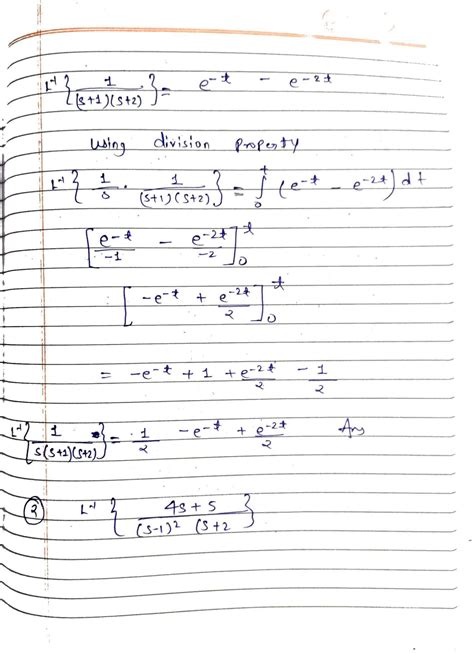 L⁻¹{1/((s+1)(s+2))} = e^-t - e^-2t
using division property
L⁻¹{1/s · 1/((s+1)(s+2))} = ∫₀ᵗ (e^-t - e^-2t) dt
[e^-t/-1 - e^-2t/-2]₀ᵗ
[-e^-t + e^-2t/2]₀ᵗ
= -e^-t + 1 + e^-2t/2 - 1/2
L⁻¹{1/(s(s+1)(s+2))} = 1/2 - e^-t + e^-2t/2 Ans
② L⁻¹{(4s+5)/((s-1)² (s+2}